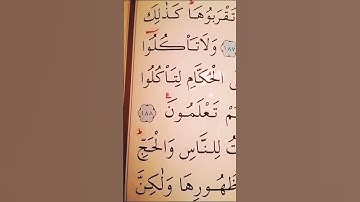 تَقْرَبُوهَا كَذَٰلِكَ
١٨٧ وَلَا تَأْكُلُوا
الْحُكَّامِ لِتَأْكُلُوا
تَعْلَمُونَ ١٨٨
لِلنَّاسِ وَالْحَجِّ
وَلَٰكِنَّ